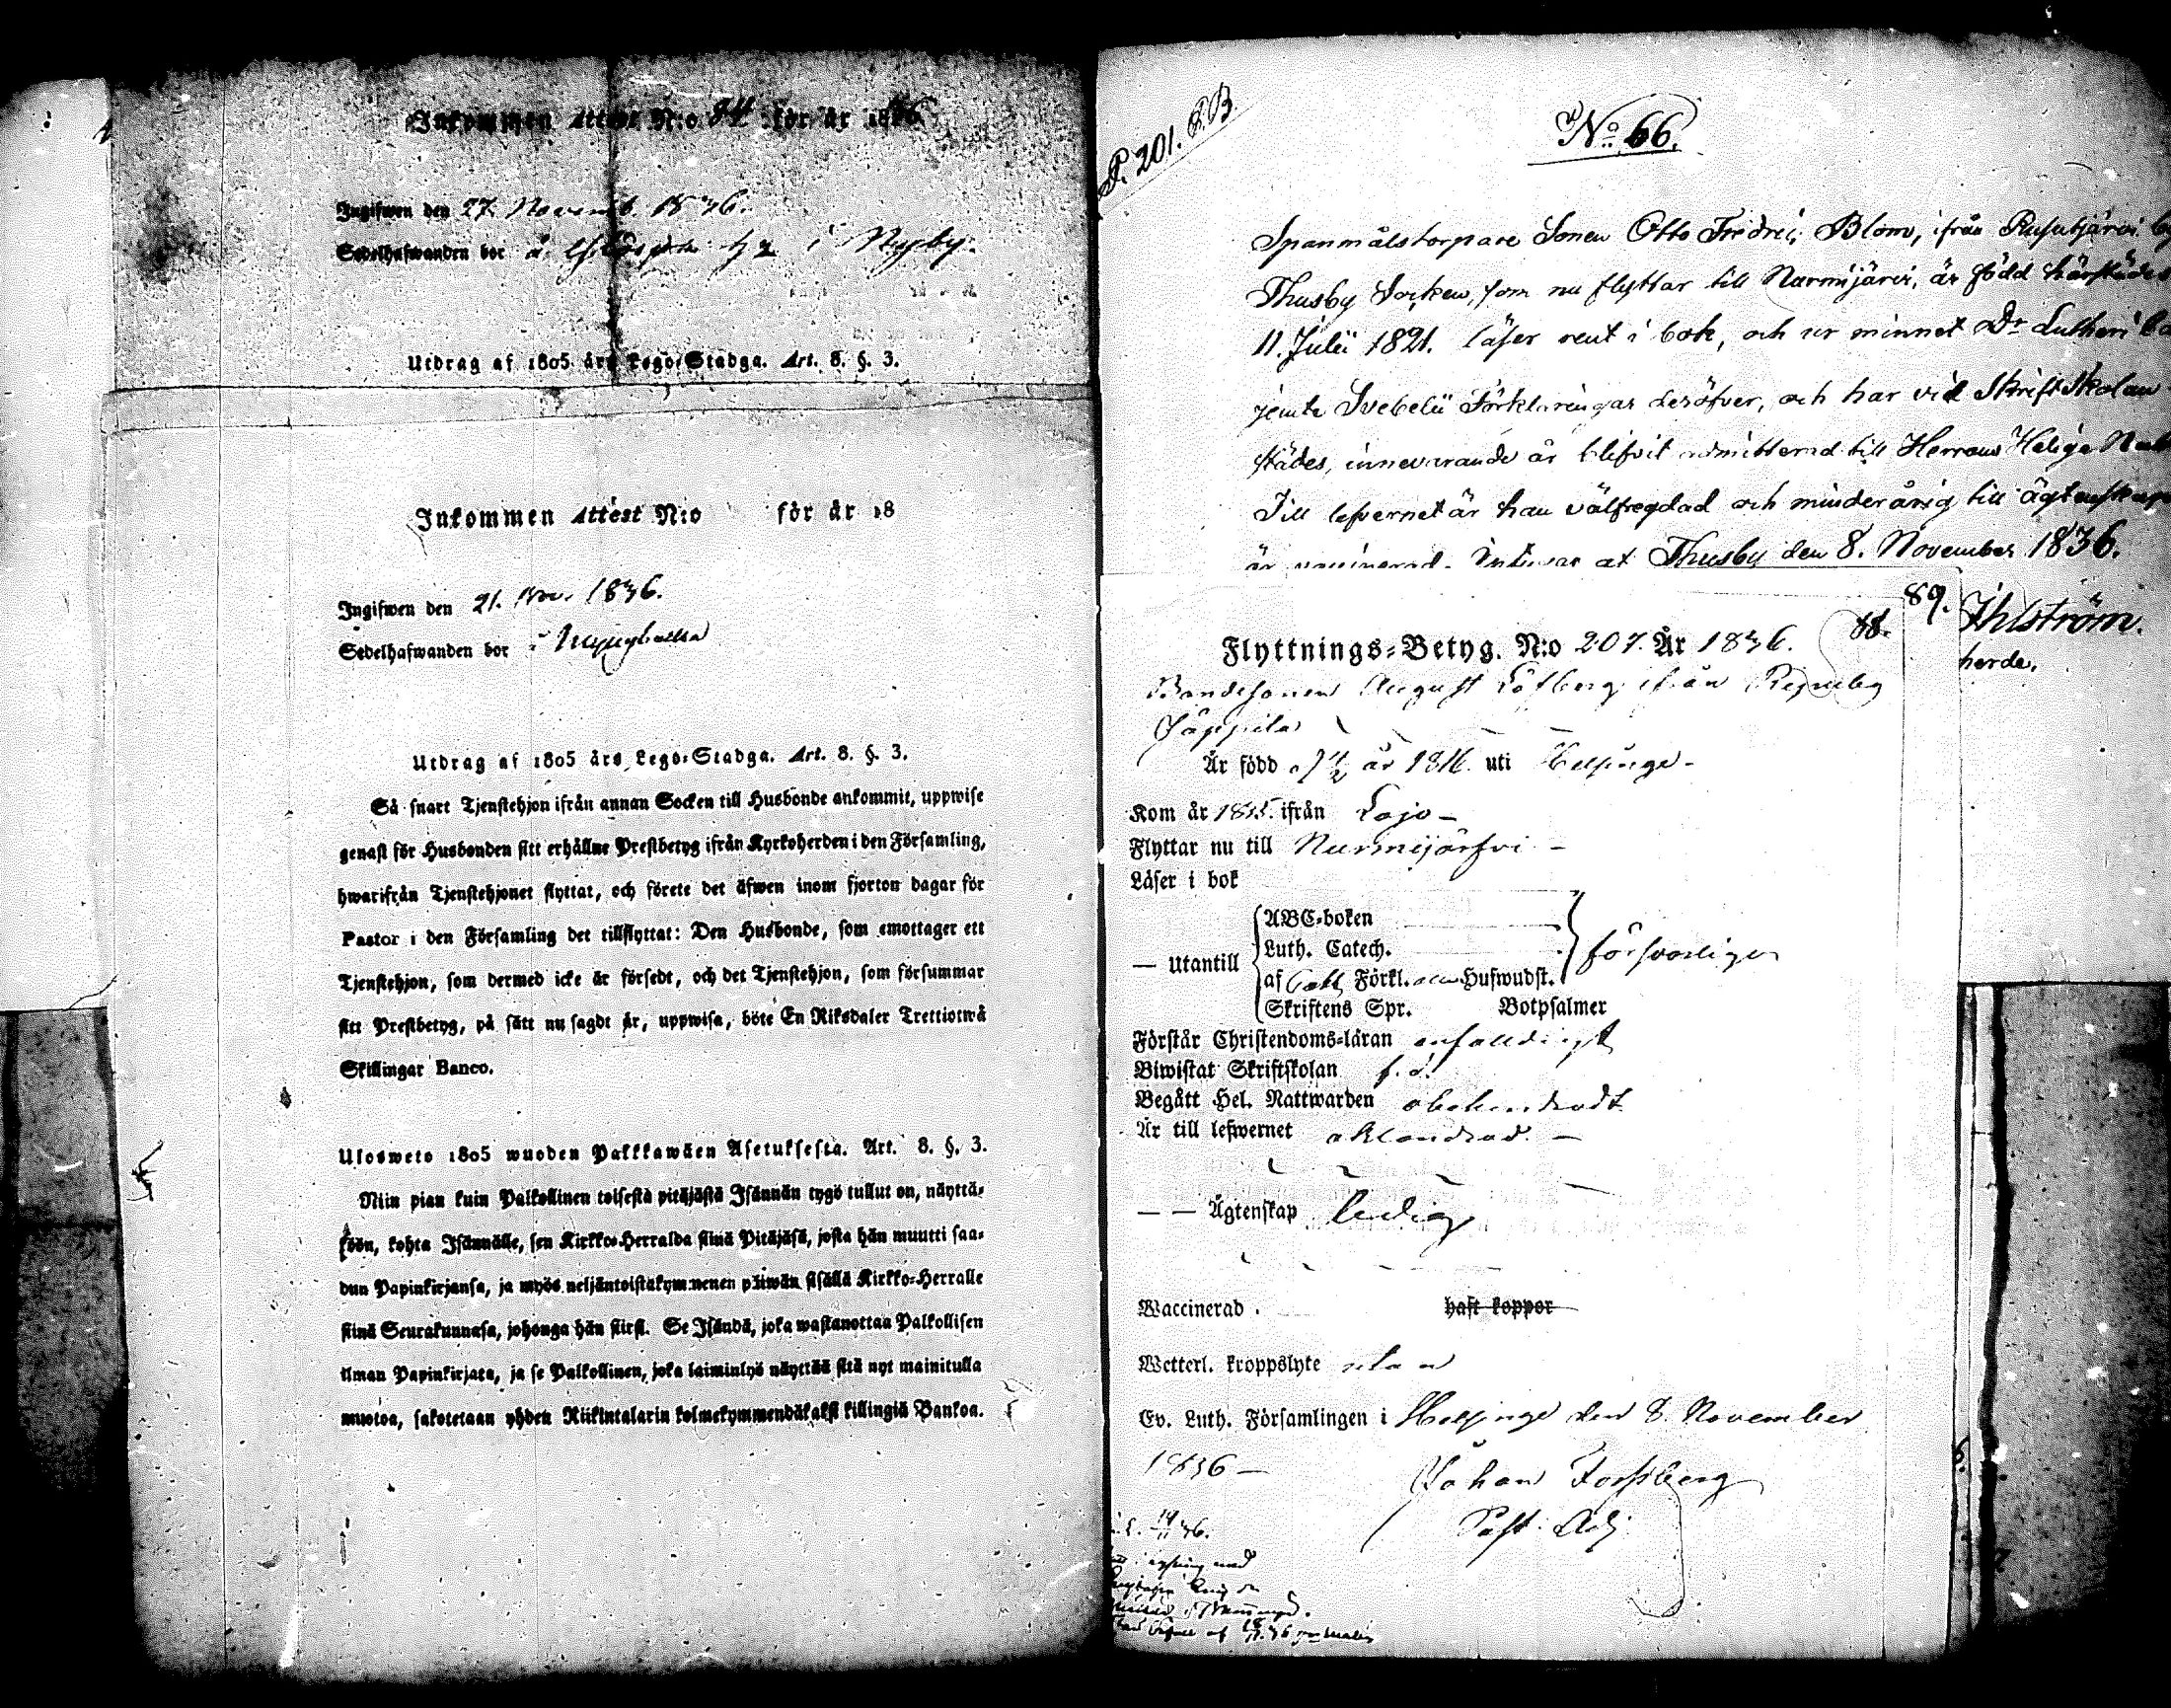 Inkommen Attest N:o 84 för år 1836
Ingifwen den 27. Novemb. 1836.
Sedelhafwanden bor å i Nyby.
Utdrag af 1805 års Lego-Stadga. Art. 8. §. 3.
Inkommen Attest N:o för år 18
Ingifwen den 21. Nov. 1836.
Sedelhafwanden bor i
Utdrag af 1805 års Lego-Stadga. Art. 8. §. 3.
Så snart Tjenstehjon ifrån annan Socken till Husbonde ankommit, uppwise
genast för Husbonden sitt erhållne Prestbetyg ifrån Kyrkoherden i den Församling,
hwarifrån Tjenstehjonet flyttat, och förete det äfwen inom fjorton dagar för
Pastor i den Församling det tillflyttat: Den Husbonde, som emottager ett
Tjenstehjon, som dermed icke är försedt, och det Tjenstehjon, som försummar
sitt Prestbetyg, på sätt nu sagdt är, uppwisa, böte En Riksdaler Trettiotwå
Skillingar Banco.
Ulosweto 1805 wuoden Palkkawäen Asetuksesta. Art. 8. §. 3.
Niin pian kuin Palkollinen toisesta pitäjästä Isännän tygö tullut on, näyttä-
köön, kohta Isännälle, sen Kirkko-Herralda siinä Pitäjäsä, josta hän muutti saa-
dun Papinkirjansa, ja myös neljäntoistakymmenen päiwän sisällä Kirkko-Herralle
siinä Seurakunnasa, johonga hän siirsi. Se Isändä, joka wastanottaa Palkollisen
ilman Papinkirjata, ja se Palkollinen, joka laiminlyö näyttää sitä nyt mainitulla
muotoa, sakotetaan yhden Riikintalarin kolmekymmendäkaksi killingiä Bankoa.
P. 201. S.B.
No. 66.
Spanmålstorpare Sonen Otto Fredric Blom, ifrån Rusutjärvi by
Thusby Socken, som nu flyttar till Nurmijärvi, är född härstädes
11. Julii 1821. läser rent i bok, och ur minnet Dr. Lutheri
jemte Svebelii Förklaringar deröfver, och har vid Skriftskolan
städes, innevarande år blifvit admitterad till Herrans Heliga
Till lefvernet är han välfregdad och minderårig till ägtenskap
är vaccinerad. Intygar at Thusby den 8. November 1836.
89. Ihlström.
herde.
88.
Flyttnings-Betyg. N:o 207. År 1836.
Bondesonen August Löfberg ifrån
Jäppilä
Är född år 1816. uti Helsinge -
Kom år 1835. ifrån Lojo -
Flyttar nu till Nurmijärfvi -
Läser i bok
— Utantill
ABC-boken
Luth. Catech.
af Förkl. Hufwudst.
Skriftens Spr. Botpsalmer
försvarligen
Förstår Christendoms-läran enfalldigt
Biwistat Skriftskolan
Begått Hel. Nattwarden obehindradt
Är till lefwernet oklandrad. -
— — Ägtenskap ledig
Waccinerad. haft koppor
Wetterl. kroppslyte utan
Ev. Luth. Församlingen i Helsinge den 8. November
1836 -
Johan Forssberg
Past. Adj.